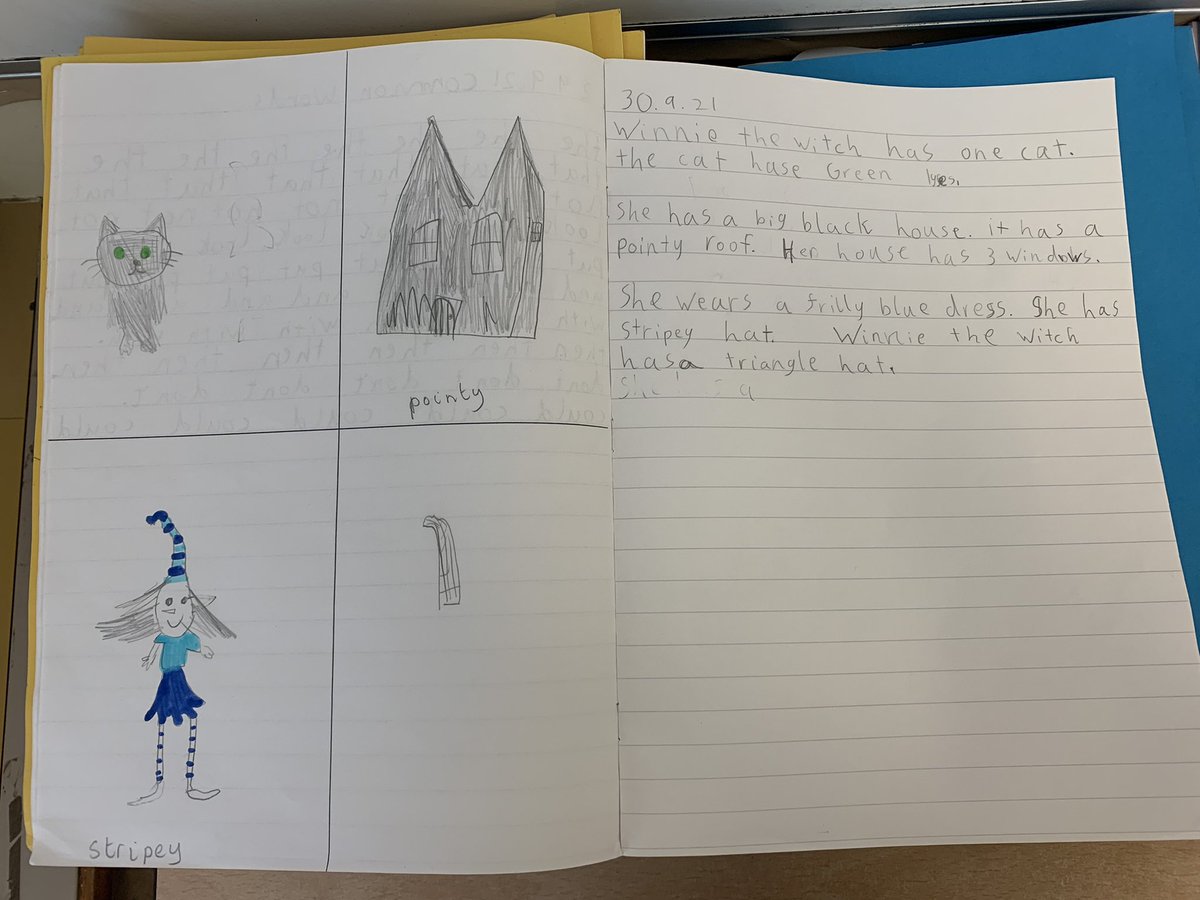 pointy
stripey
30.9.21
Winnie the witch has one cat.
the cat hase Green
She has a big black house. it has a
pointy roof. Her house has 3 windows.
She wears a frilly blue dress. She has
stripey hat. Winnie the witch
has a triangle hat.